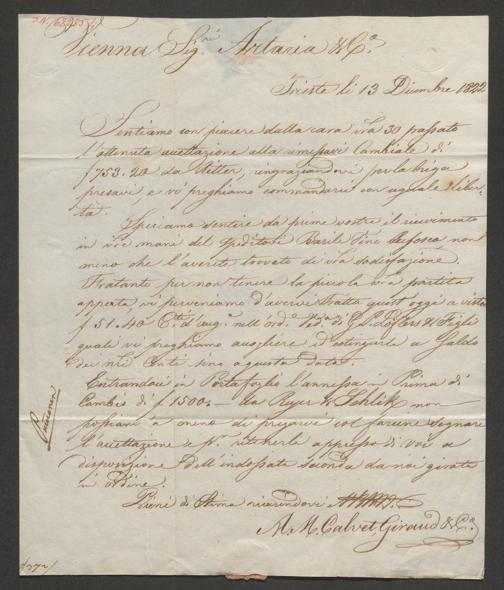 Vienna Sig.ri Artaria & C.o
Trieste li 13 Dicembre 1822
Sentiamo con piacere dalla cara v̄ra 30 passato
l'ottenuta accettazione alla Cambiale di
f 753.20 da Ritter, ingraziandovi per la briga
presavi e vi preghiamo commandarci con aguale liber-
tà.
Speriamo sentire da prime vostre il ricevimento
in v̄re mani del Basili non
meno che l'averete trovato di v̄ra sodisfazione.
Fratanto per non tenere la picola v̄ra partita
apperta, vi preveniamo d'avervi tratta quest'oggi a vista
f 51.40 C.ti d'aug.a nell'ord.e & Figli
quali vi preghiamo accogliere ed estinguerli a Saldo
dei n̄ri Conti sino a questa data.
Entrandoci in Portafoglio l'annessa in Prima di
Cambio di f 1500.- da Reyer & Schlik non
possiamo a meno di pregarvi col farcene segnare
l'accettazione e ritenerla appresso di voi a
disposizione dell'indossata seconda da noi girata
in ordine.
Pieni di Stima riverendovi
A. M. Calvet, Giraud & C.o